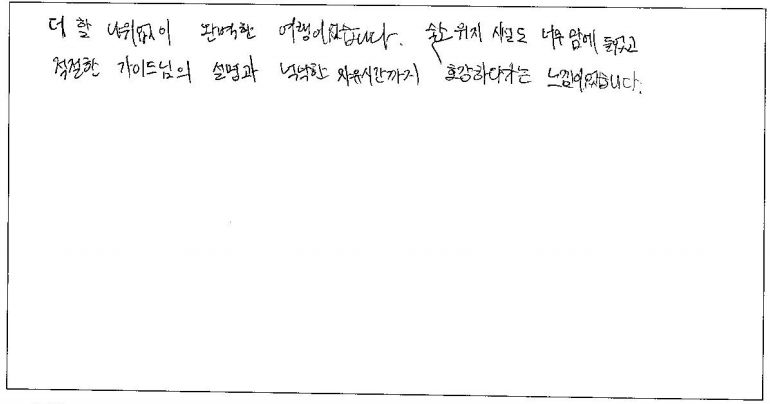 더 할 나위없이 완벽한 여행이었습니다. 숙소 위치 시설도 너무 맘에 들었고
적절한 가이드님의 설명과 넉넉한 자유시간까지 호강하다가는 느낌이었습니다.